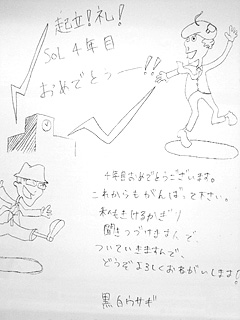 起立!礼!
SOL 4年目
おめでとうー!!
4年目おめでとうございます。
これからもがんばって下さい。
私もきけるかぎり
聞きつづけますんで、
ついていきますんで、
どうぞよろしくおねがいします!
黒白ウサギ